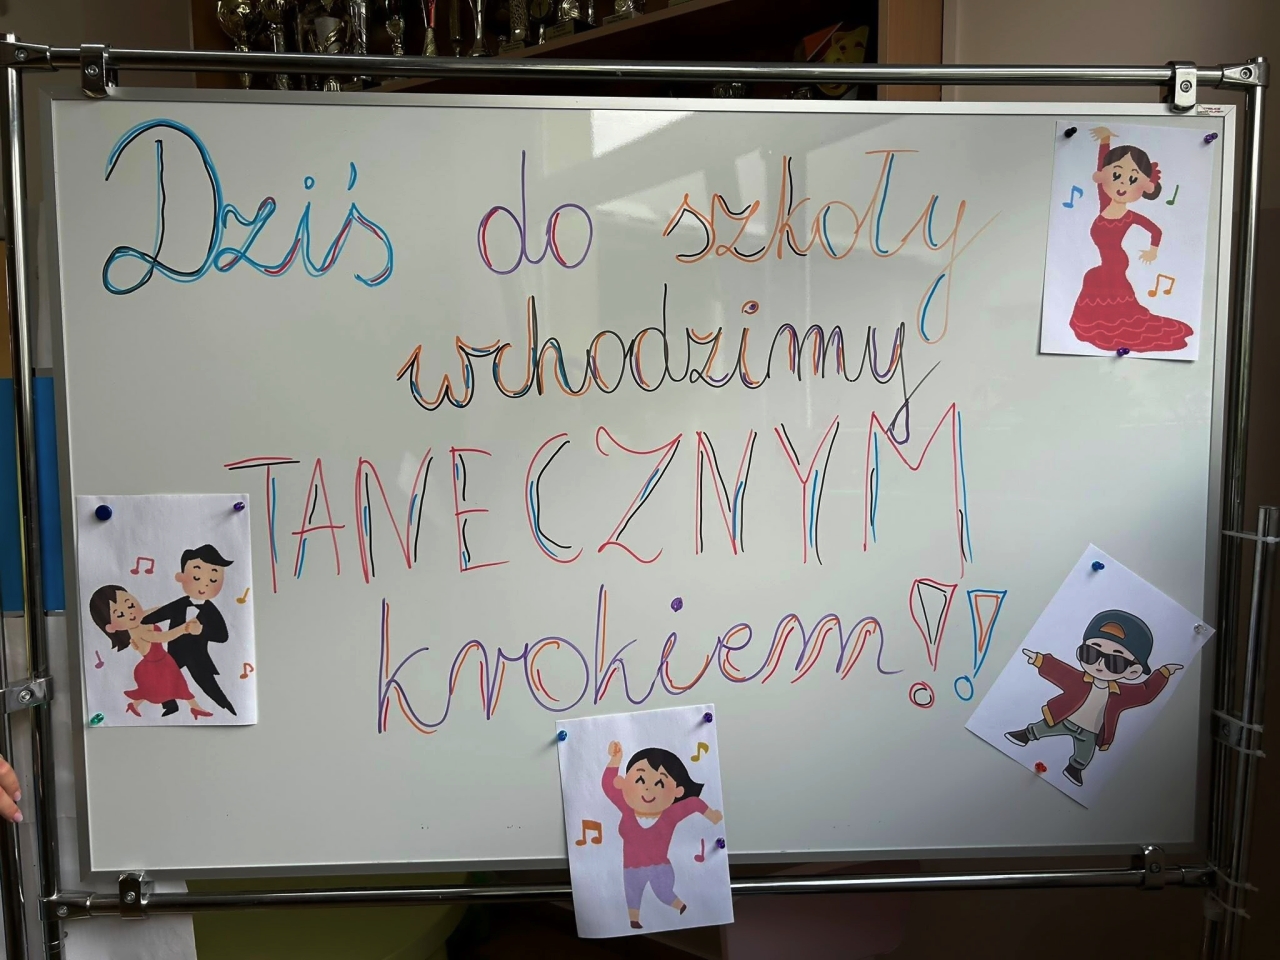 Dziś do szkoły
wchodzimy
TANECZNYM
krokiem!!